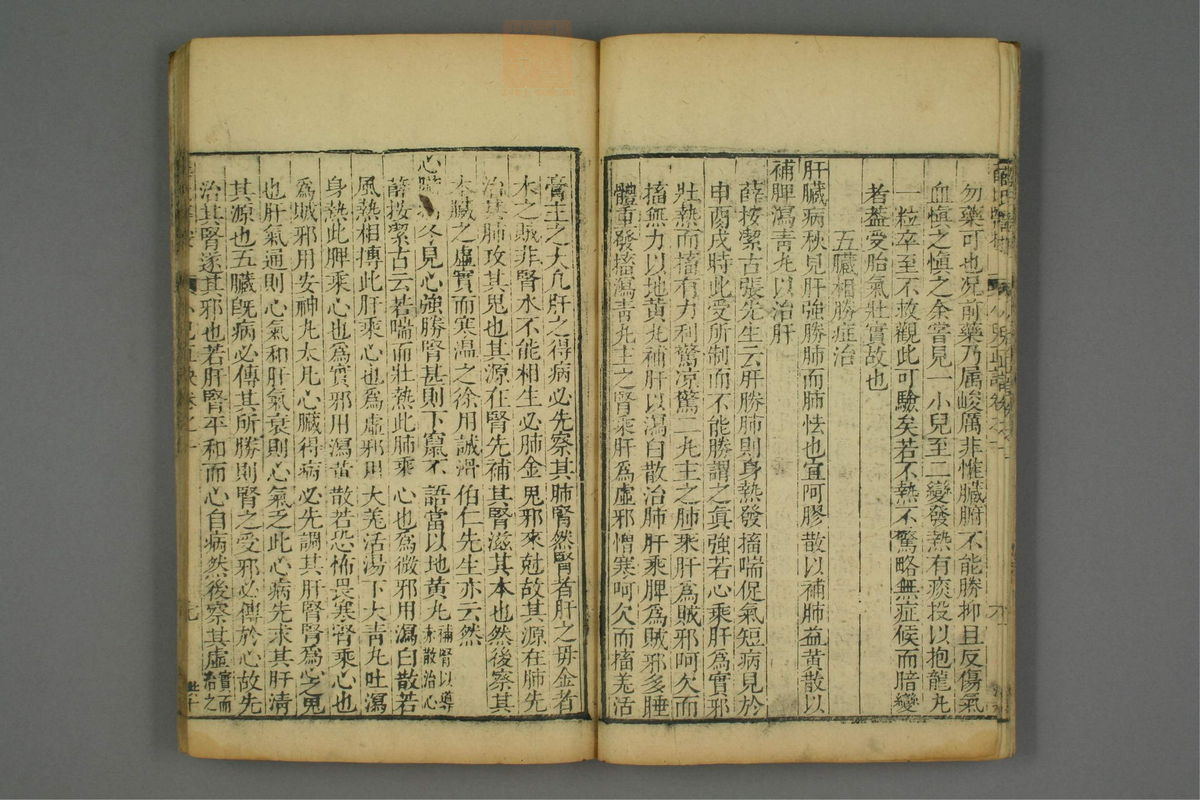 勿藥可也况前藥乃属峻厲非惟臟腑不能勝抑且反傷氣
血慎之慎之余嘗見一小兒至二變發熱有痰投以抱龍丸
一粒卒至不救觀此可驗矣若不熱不驚略無症候而暗變
者蓋受胎氣壯實故也
五臟相勝症治
肝臟病秋見肝強勝肺而肺怯也宜阿膠散以補肺益黄散以
補脾瀉青丸以治肝
薛按潔古張先生云肝勝肺則身熱發搐喘促氣短病見於
申酉戌時此受所制而不能勝謂之眞強若心乘肝爲實邪
壯熱而搐有力利驚凉驚二丸主之肺乘肝爲賊邪呵欠而
搐無力以地黄丸補肝以瀉白散治肺肝乘脾爲賊邪多睡
體重發搐瀉青丸主之腎乘肝爲虚邪憎寒呵欠而搐羗活
膏主之大凡肝之得病必先察其肺腎然腎者肝之毋金者
木之賊非腎水不能相生必肺金鬼邪來尅故其源在肺先
治其肺攻其鬼也其源在腎先補其腎滋其本也然後察其
本臟之虚實而寒温之徐用誠滑伯仁先生亦云然
心臟病冬見心強勝腎甚則下竄不語當以地黄丸補腎以導赤散治心
薛按潔古云若喘而壯熱此肺乘心也爲微邪用瀉白散若
風熱相摶此肝乘心也爲虚邪用大羗活湯下大青丸吐瀉
身熱此脾乘心也爲實邪用瀉黄散若恐怖畏寒腎乘心也
爲賊邪用安神丸大凡心臟得病必先調其肝腎腎爲心之鬼
也肝氣通則心氣和肝氣衰則心氣乏此心病先求其肝清
其源也五臟旣病必傳其所勝則腎之受邪必傳於心故先
治其腎遂其邪也若肝腎平和而心自病然後察其虚實而治之